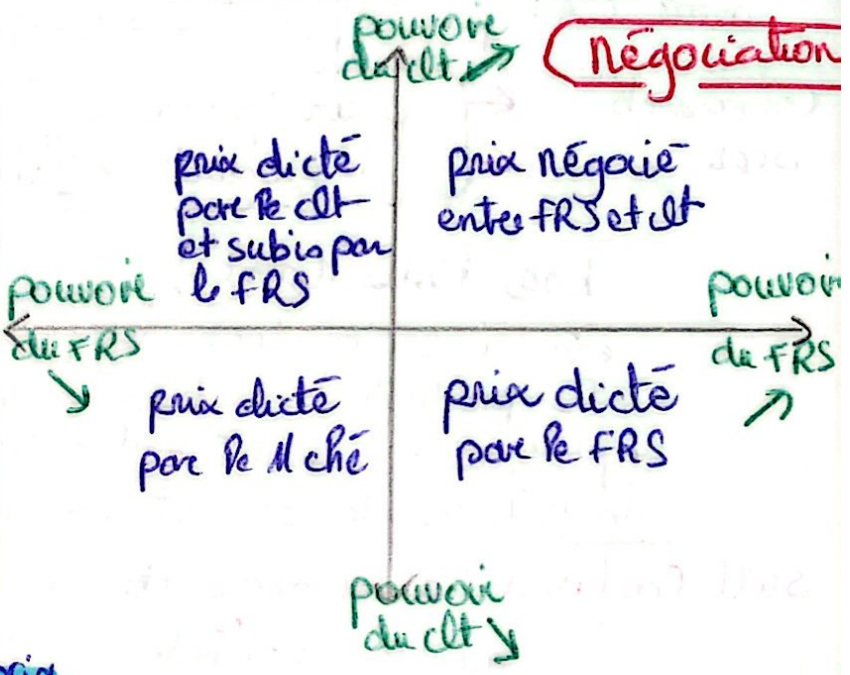 pouvoir
du clt ↗
négociation
prix dicté
par le clt
et subis par
le FRS
prix négocié
entre FRS et clt
pouvoir
du FRS
↘
pouvoir
du FRS
↗
prix dicté
par le Mché
prix dicté
par le FRS
pouvoir
du clt ↘